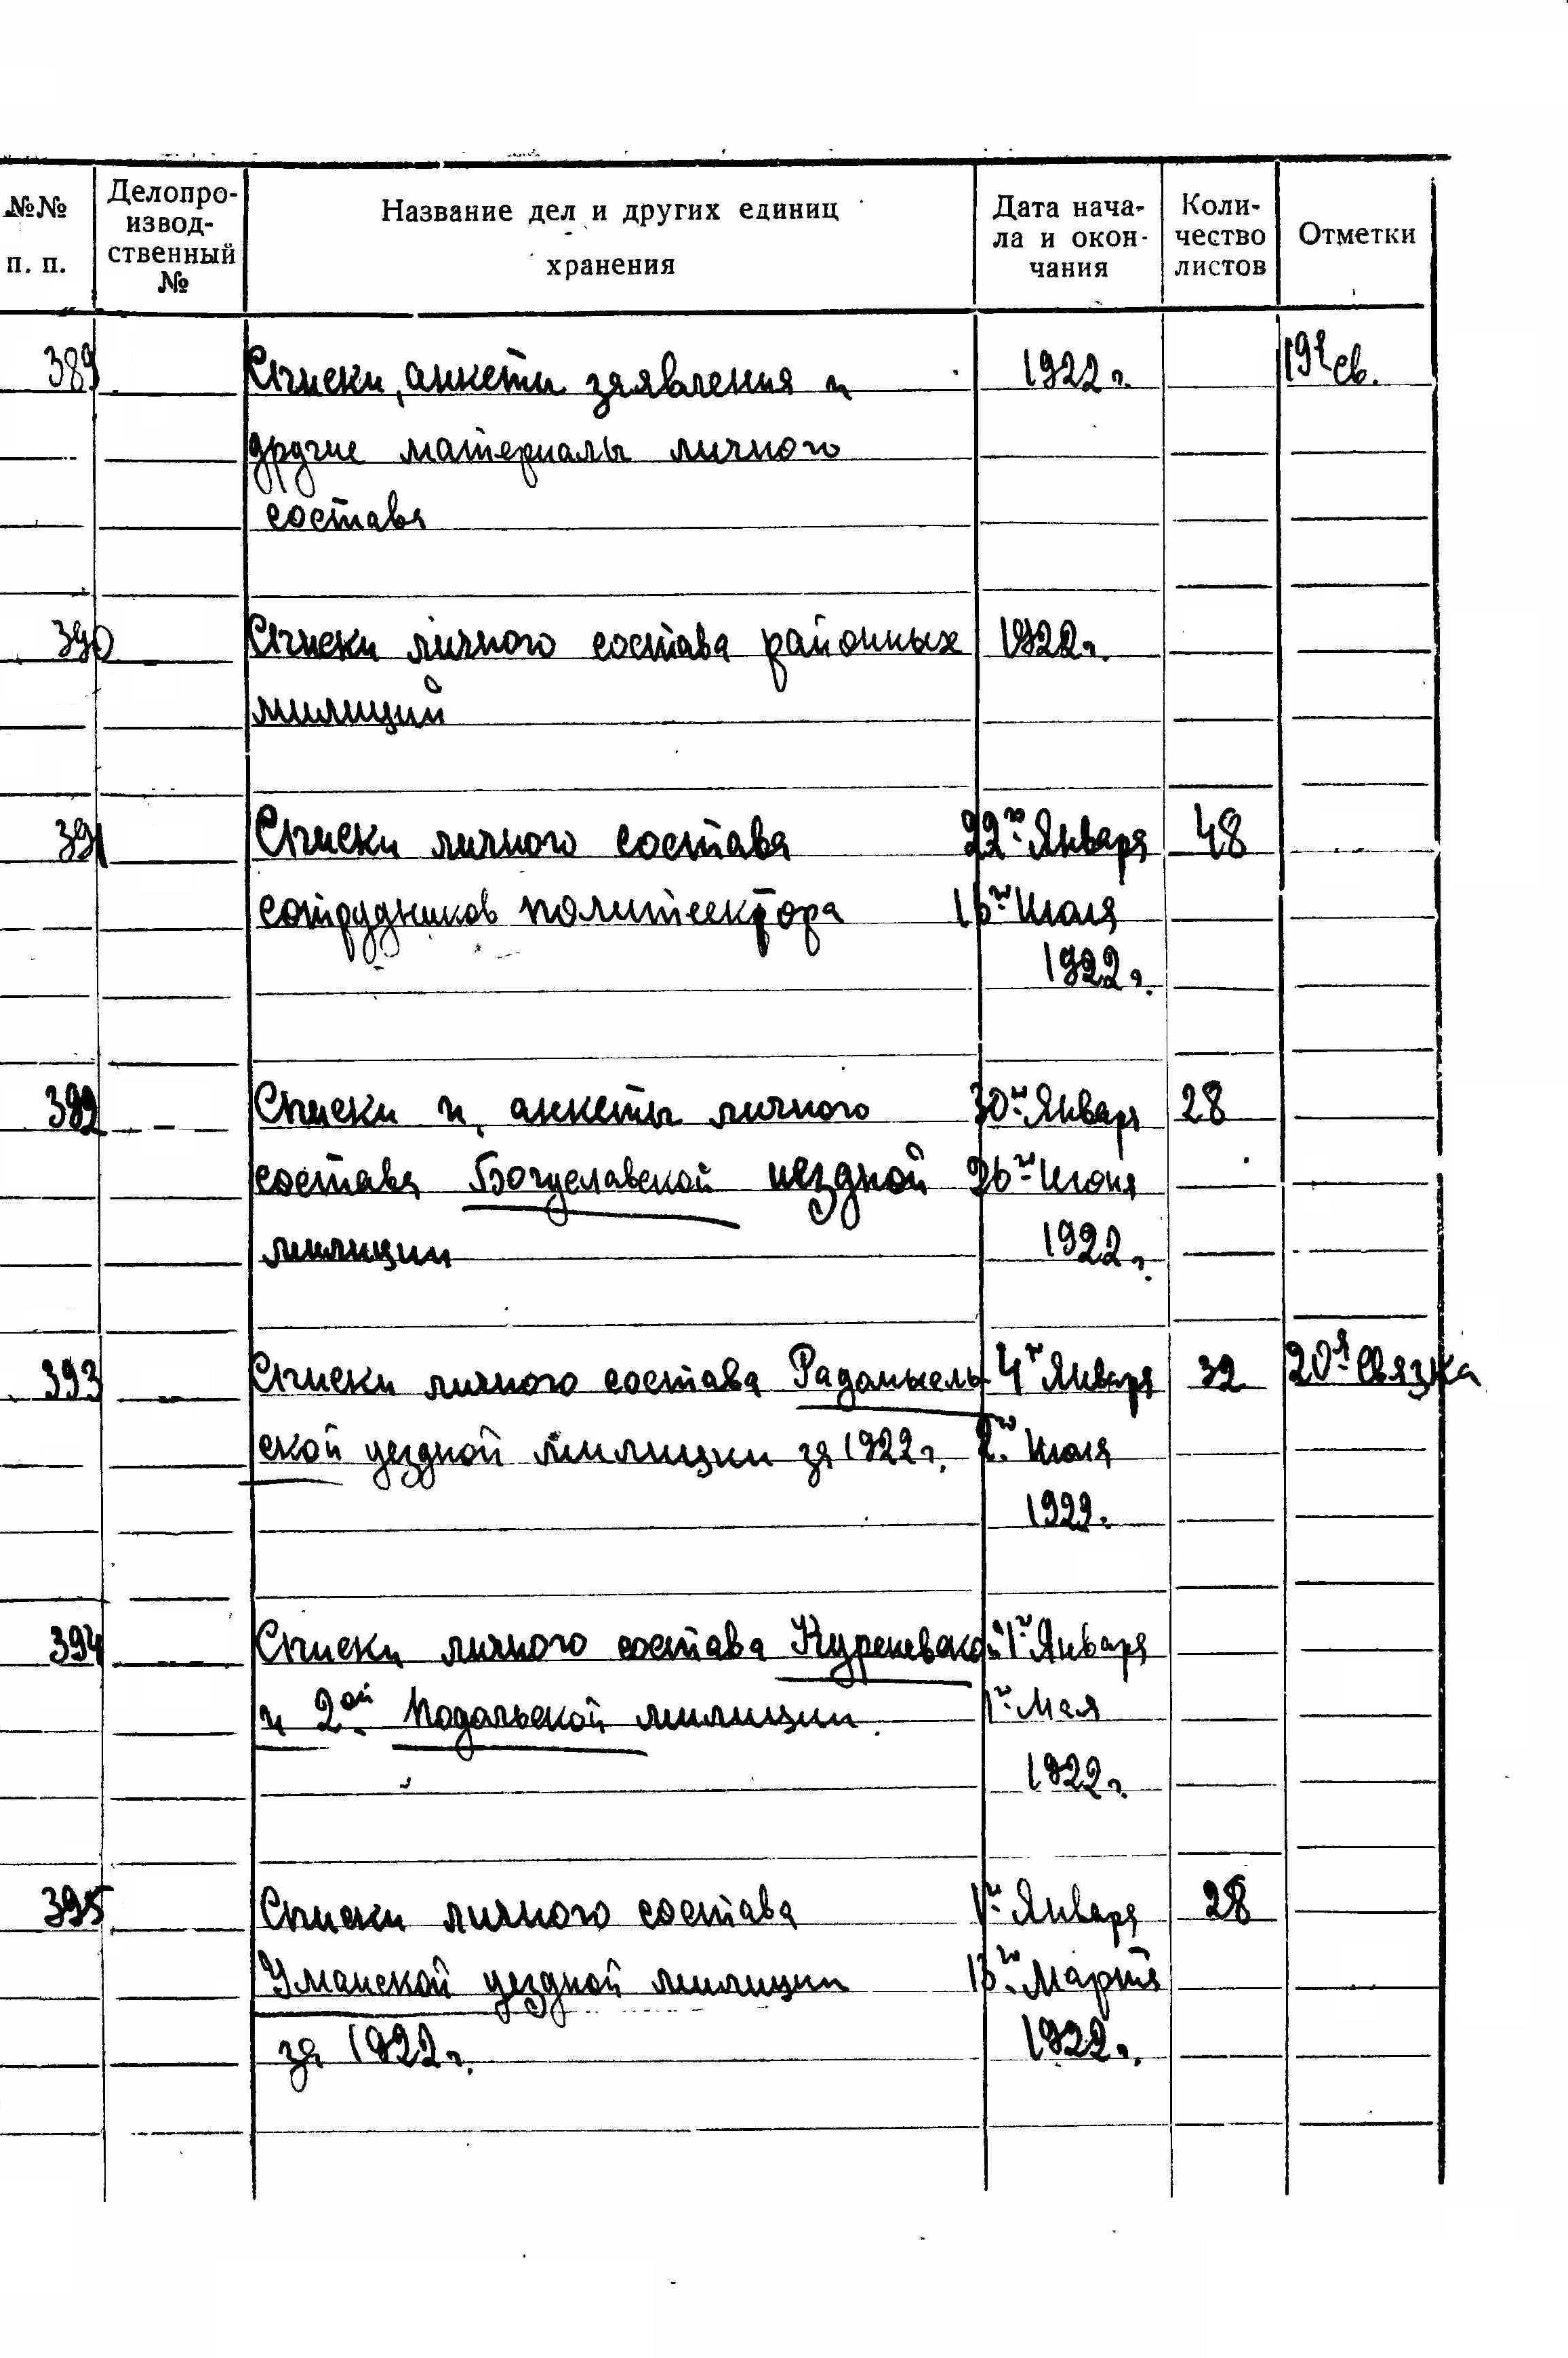 №№ п. п. Делопроизводственный № Название дел и других единиц хранения Дата начала и окончания Количество листов Отметки
389 Списки, анкети заявления и 1922 г. 19я св.
другие материалы личного
состава
390 Списки личного состава районных 1922 г.
милиций
391 Списки личного состава 22го Января 48
сотрудников политсектора 16го Июля
1922 г.
392 Списки и анкеты личного 30го Января 28
состава Богуславской уездной 26го Июня
милиции 1922 г.
393 Списки личного состава Радомысль- 4го Января 32 20я связка
ской уездной милиции за 1922 г. 2го Июля
1922.
394 Списки личного состава Куреневской 1го Января
и 2ой Подольской милиции. 1го Мая
1922 г.
395 Списки личного состава 1го Января 28
Уманской уездной милиции 13го Марта
за 1922 г. 1922 г.